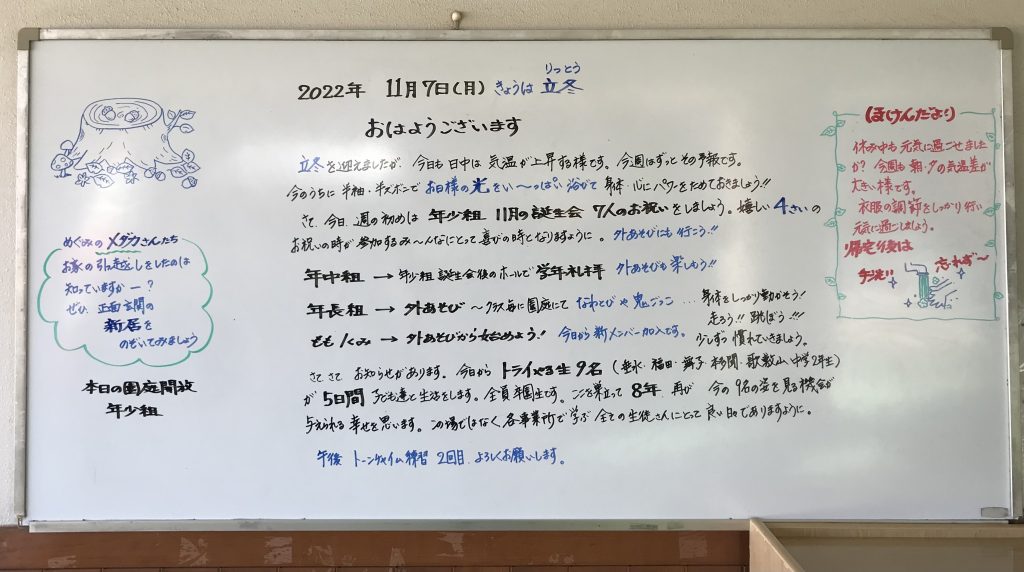 りっとう
2022年 11月7日(月) きょうは 立冬
おはようございます
立冬を迎えましたが、今日も日中は 気温が上昇する様です。今週はずっと その予報です。
今のうちに 半袖・半ズボンで お日様の光をい〜っぱい 浴びて 身体・心にパワーをためておきましょう!!
さて、今日、週の初めは 年少組 11月の誕生会 7人のお祝いをしましょう。嬉しい 4さいの
お祝いの時が 参加するみ〜んなにとって 喜びの時となりますように。外あそびにも 行こう!!
年中組 → 年少組 誕生会後のホールで 学年礼拝 外あそびも 楽しもう!!
年長組 → 外あそび 〜クラス毎に園庭にて なわとび や 鬼ごっこ… 身体をしっかり動かそう!
走ろう!! 跳ぼう…!!!
もも1くみ → 外あそびから始めよう! 今日から新メンバー加入です。少しずつ 慣れていきましょう。
さてさて お知らせがあります。今日から トライやる生 9名 (垂水・福田・舞子・多聞・歌敷山 中学2年生)
が 5日間 子ども達と生活をします。全員 卒園生です。ここを巣立って 8年、再び 今の 9名の姿を見る機会が
与えられる 幸せを思います。この場ではなく、各事業所で学ぶ 全ての生徒さんにとって 良い日々でありますように。
午後 トーンチャイム練習 2回目、よろしくお願いします。
めぐみの メダカさんたち
お家の引っ越しをしたのは
知っていますかー?
ぜひ、正面玄関の
新居を
のぞいてみましょう
本日の園庭開放
年少組
ほけんだより
休み中も元気に過ごせました
か? 今週も朝・夕の気温差が
大きい様です。
衣服の調節をしっかり行い
元気に過ごしましょう。
帰宅後は
手洗い 忘れず〜